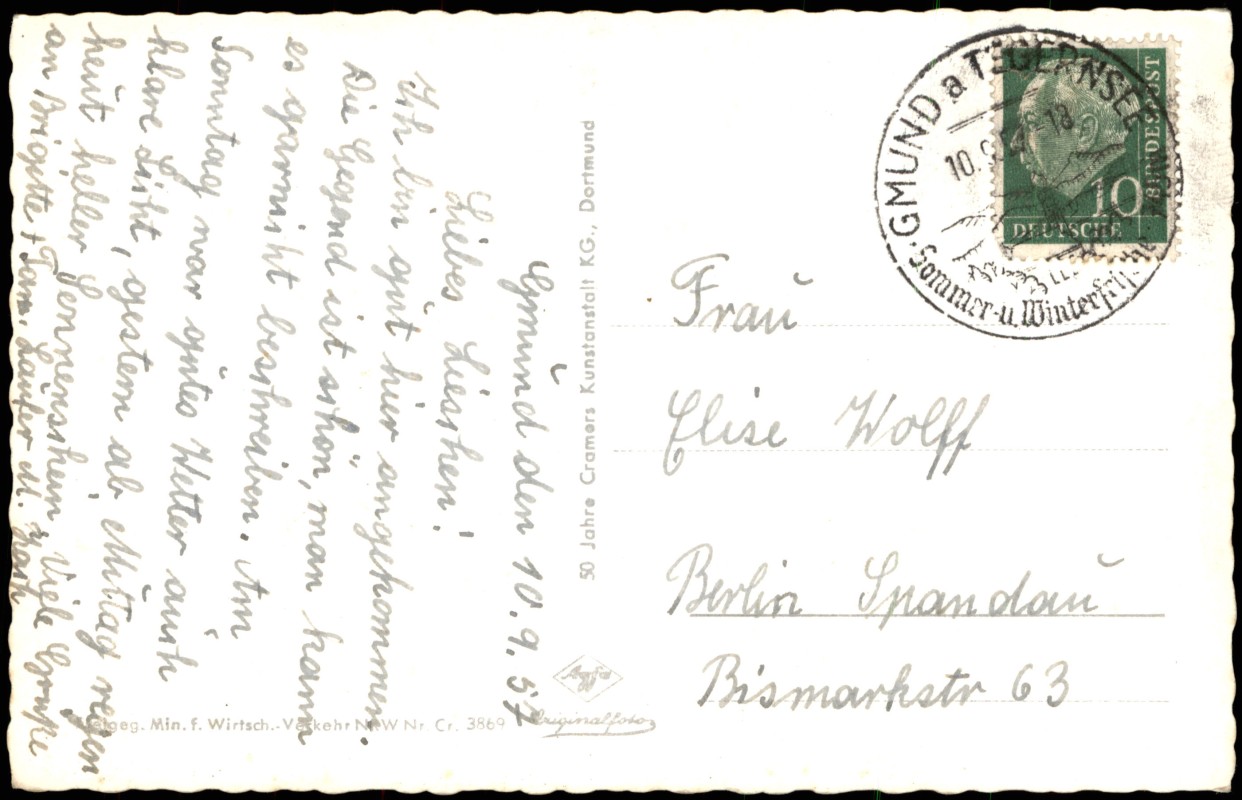 Gmünd den 10.9.57
Liebes Lieschen!
Ich bin gut hier angekommen.
Die Gegend ist schön, man kann
es garnicht beschreiben. Am
Sonntag war gutes Wetter auch
klare Sicht, gestern ab Mittag regen
heut heller Sonnenschein. Viele Grüße
an Brigitte + Fam. Laufer
50 Jahre Cramers Kunstanstalt KG., Dortmund
Freigeg. Min. f. Wirtsch.-Verkehr NRW Nr. Cr. 3869
Agfa
Originalfoto
GMUND a TEGERNSEE
10.9.57-18
Sommer-u.Winterfrische
DEUTSCHE
BUNDESPOST
10
Frau
Elise Wolff
Berlin Spandau
Bismarkstr 63